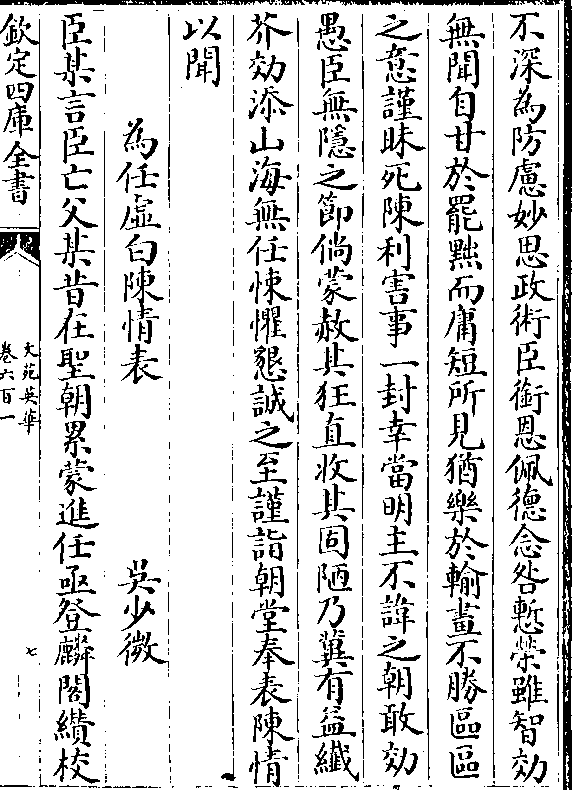 不深為防慮妙思政術臣銜恩佩德念咎慙榮雖智効
無聞自甘於罷黜而庸短所見猶樂於輸畫不勝區區
之意謹昧死陳利害事一封幸當明主不諱之朝敢効
愚臣無隱之節倘蒙赦其狂直收其固陋乃冀有益纖
芥効添山海無任悚懼懇誠之至謹詣朝堂奉表陳情
以聞
為任虛白陳情表 吳少微
臣某言臣亡父某昔在聖朝累蒙進任亟登麟閣纘校
欽定四庫全書
文苑英華
卷六百一
七